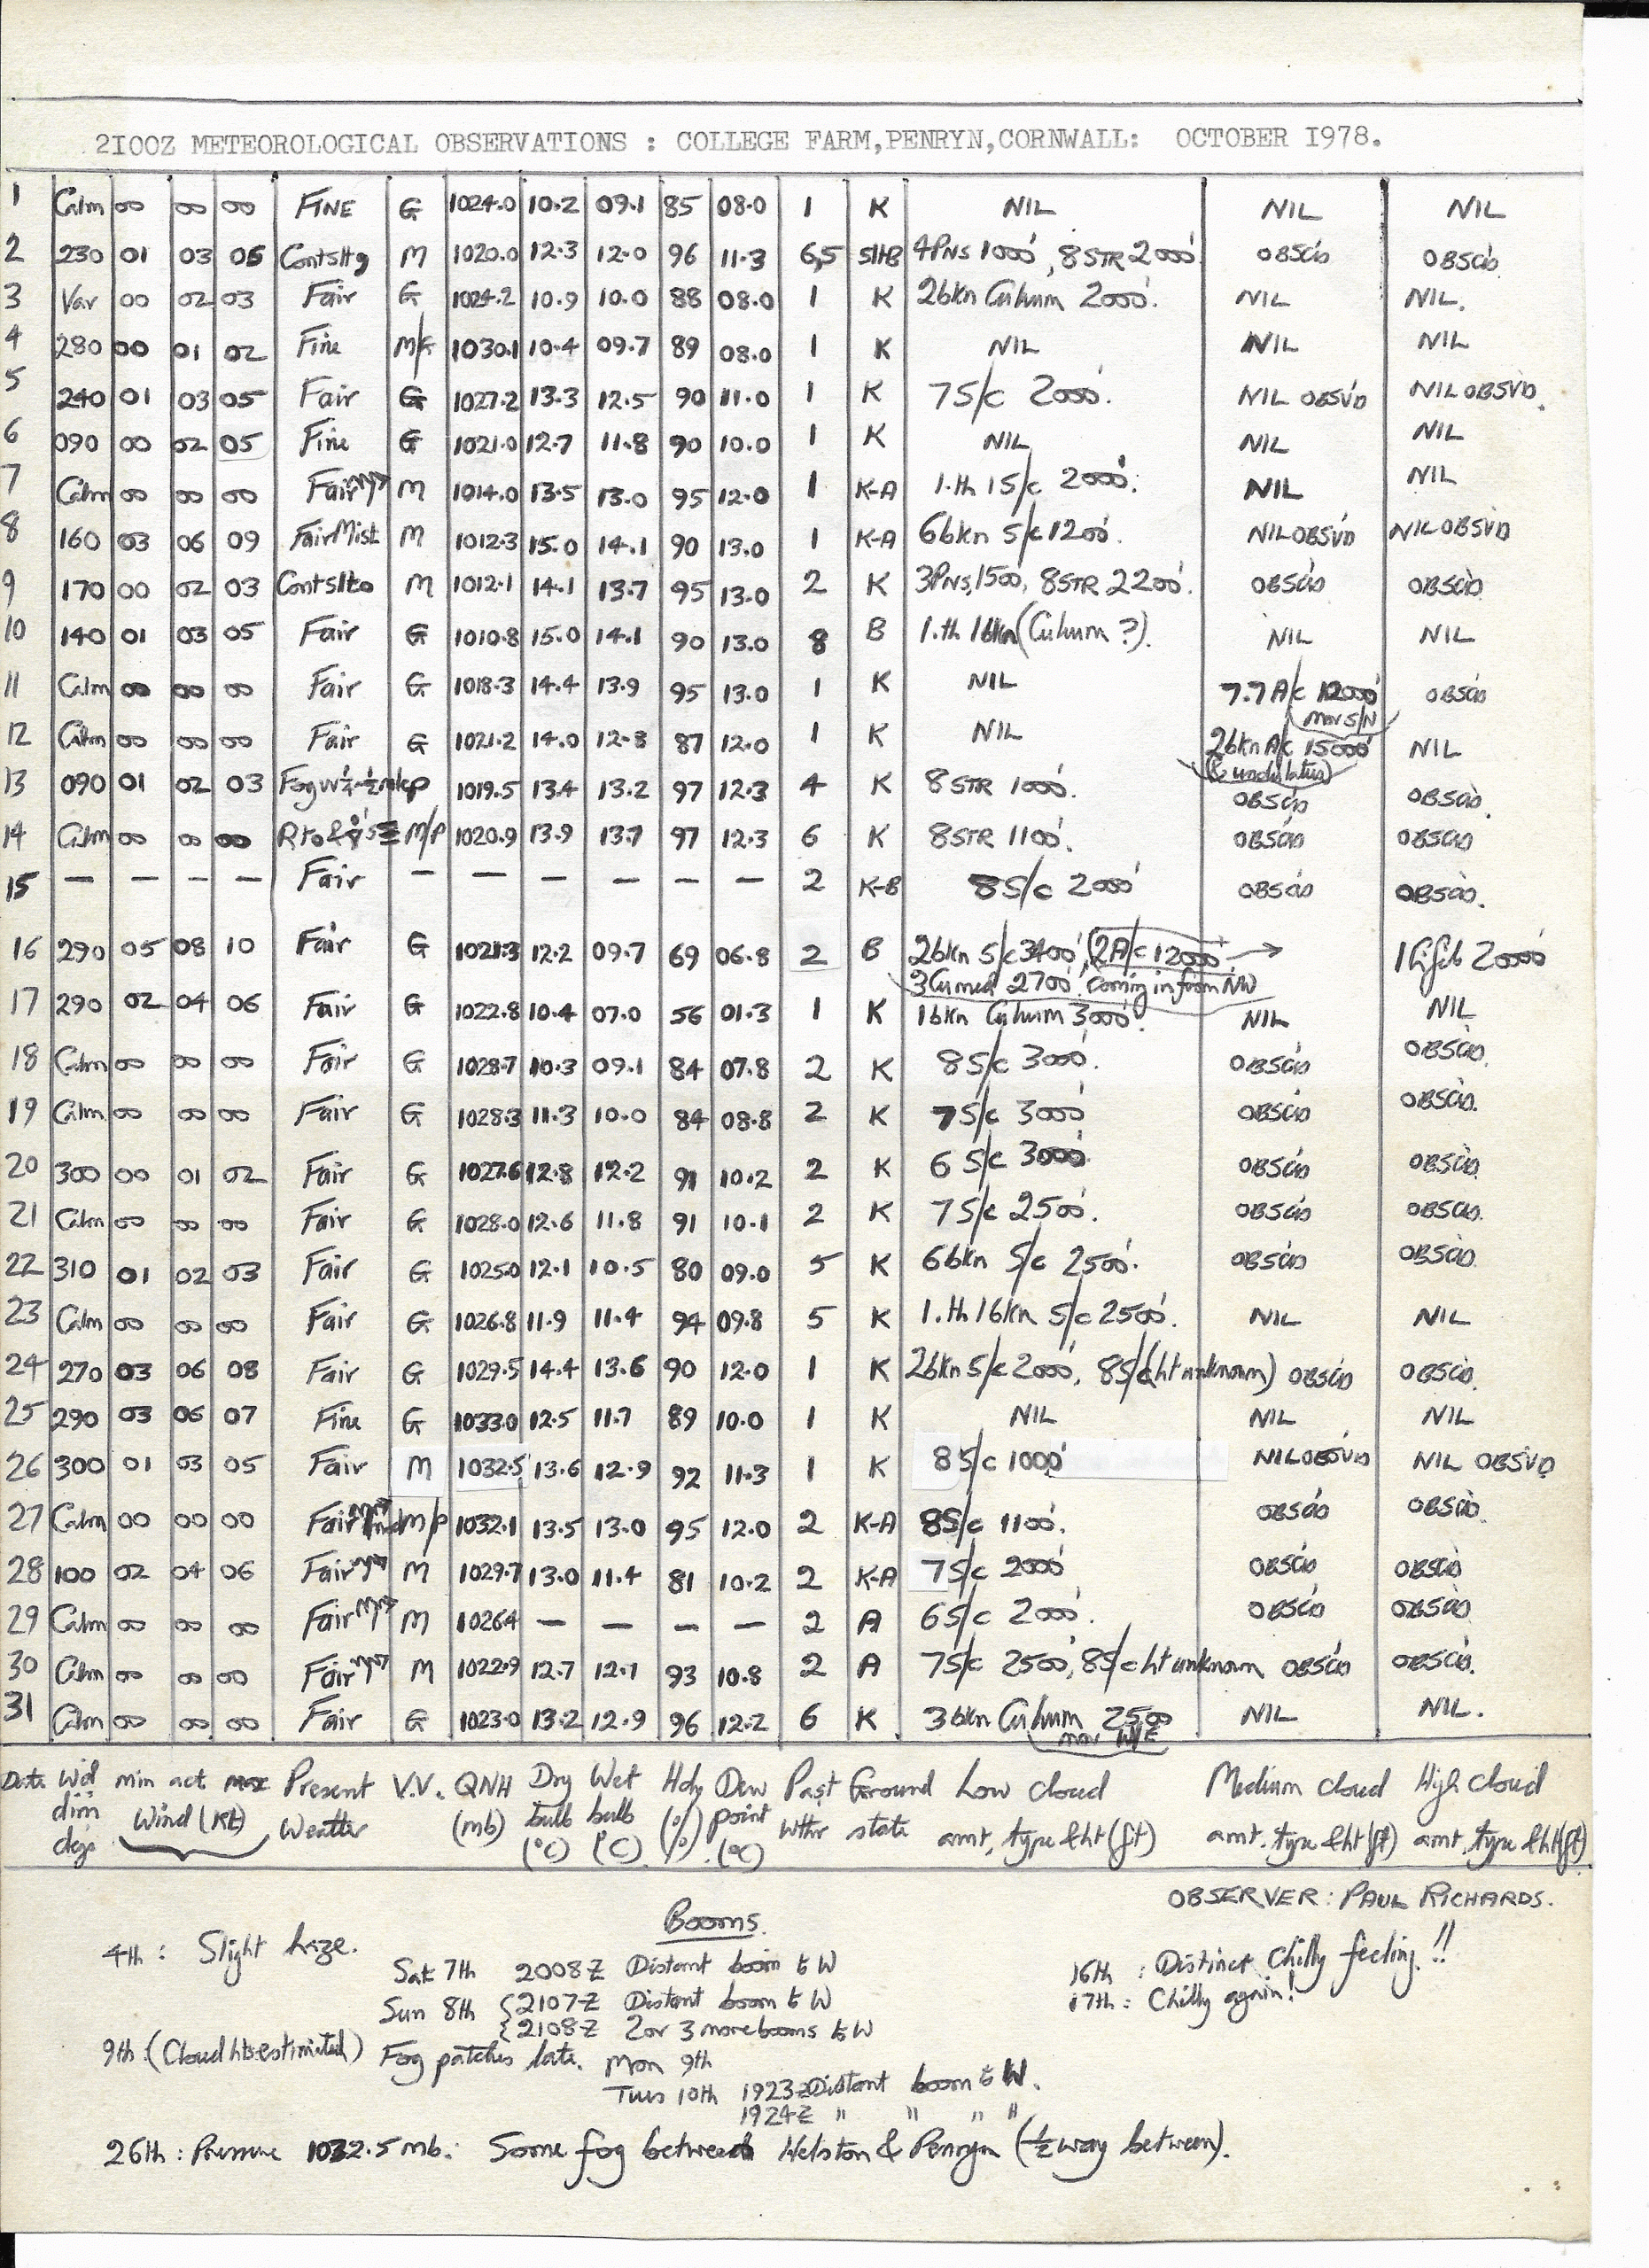 2100Z METEOROLOGICAL OBSERVATIONS : COLLEGE FARM,PENRYN,CORNWALL: OCTOBER 1978.
1 Calm 00 00 00 FINE G 1024.0 10.2 09.1 85 08.0 1 K NIL NIL NIL
2 230 01 03 06 M 1020.0 12.3 12.0 96 11.3 6,5 4PNS 1000', 8STR 2000' OBSCD OBSCD
3 Var 00 02 03 Fair G 1024.2 10.9 10.0 88 08.0 1 K 2bkn Cuhum 2000'. NIL NIL.
4 280 00 01 02 Fine M/G 1030.1 10.4 09.7 89 08.0 1 K NIL NIL NIL
5 240 01 03 05 Fair G 1027.2 13.3 12.5 90 11.0 1 K 7S/c 2000'. NIL OBSVD NIL OBSVD.
6 090 00 02 05 Fine G 1021.0 12.7 11.8 90 10.0 1 K NIL NIL NIL
7 Calm 00 00 00 Fair M 1014.0 13.5 13.0 95 12.0 1 K-A 1.th 1S/c 2000'. NIL NIL
8 160 03 06 09 Fair Mist M 1012.3 15.0 14.1 90 13.0 1 K-A 6bkn S/c 1200'. NIL OBSVD NIL OBSVD
9 170 00 02 03 M 1012.1 14.1 13.7 95 13.0 2 K 3PNS, 1500, 8STR 2200'. OBSCD OBSCD
10 140 01 03 05 Fair G 1010.8 15.0 14.1 90 13.0 8 B 1.th 1bkn (Cuhum ?). NIL NIL
11 Calm 00 00 00 Fair G 1018.3 14.4 13.9 95 13.0 1 K NIL 7.7 A/c 12000' OBSCD
(mov S/N)
12 Calm 00 00 00 Fair G 1021.2 14.0 12.8 87 12.0 1 K NIL 2bkn A/c 15000' NIL
(& undulatus)
13 090 01 02 03 Fog p 1019.5 13.4 13.2 97 12.3 4 K 8STR 1000'. OBSCD OBSCD.
14 Calm 00 00 00 M/P 1020.9 13.9 13.7 97 12.3 6 K 8STR 1100'. OBSCD OBSCD
15 — — — — Fair — — — — — — 2 K-B 8S/c 2000' OBSCD OBSCD.
16 290 05 08 10 Fair G 1021.3 12.2 09.7 69 06.8 2 B 2bkn S/c 3400', (2A/c 12000' → 1 Cifib 20000'
3Cumed 2700'. coming in from NW
17 290 02 04 06 Fair G 1022.8 10.4 07.0 56 01.3 1 K 1bkn Cuhum 3000'. NIL NIL
18 Calm 00 00 00 Fair G 1028.7 10.3 09.1 84 07.8 2 K 8S/c 3000'. OBSCD OBSCD.
19 Calm 00 00 00 Fair G 1028.3 11.3 10.0 84 08.8 2 K 7S/c 3000' OBSCD OBSCD.
20 300 00 01 02 Fair G 1027.6 12.8 12.2 91 10.2 2 K 6 S/c 3000' OBSCD OBSCD.
21 Calm 00 00 00 Fair G 1028.0 12.6 11.8 91 10.1 2 K 7S/c 2500'. OBSCD OBSCD.
22 310 01 02 03 Fair G 1025.0 12.1 10.5 80 09.0 5 K 6bkn S/c 2500'. OBSCD OBSCD.
23 Calm 00 00 00 Fair G 1026.8 11.9 11.4 94 09.8 5 K 1.th 1bkn S/c 2500'. NIL NIL
24 270 03 06 08 Fair G 1029.5 14.4 13.6 90 12.0 1 K 2bkn S/c 2000', 8S/c (ht unknown) OBSCD OBSCD.
25 290 03 06 07 Fine G 1033.0 12.5 11.7 89 10.0 1 K NIL NIL NIL
26 300 01 03 05 Fair M 1032.5 13.6 12.9 92 11.3 1 K 8S/c 1000' NIL OBSVD NIL OBSVD
27 Calm 00 00 00 Fair M/P 1032.1 13.5 13.0 95 12.0 2 K-A 8S/c 1100'. OBSCD OBSCD.
28 100 02 04 06 Fair M 1029.7 13.0 11.4 81 10.2 2 K-A 7S/c 2000' OBSCD OBSCD
29 Calm 00 00 00 Fair M 1026.4 — — — — 2 A 6S/c 2000'. OBSCD OBSCD
30 Calm 00 00 00 Fair M 1022.9 12.7 12.1 93 10.8 2 A 7S/c 2500', 8S/c ht unknown OBSCD OBSCD.
31 Calm 00 00 00 Fair G 1023.0 13.2 12.9 96 12.2 6 K 3bkn Cuhum 2500 NIL NIL.
mov W/E
Date Wd min act max Present V.V. QNH Dry Wet Hdy Dew Past Ground Low cloud Medium cloud High cloud
dirn Wind (Kt) Weather (mb) bulb bulb (%) point Wthr state amt, type & ht (ft) amt. type & ht (ft) amt. type & ht (ft)
degs (°C) (°C) (°C)
OBSERVER: PAUL RICHARDS.
Booms.
4th: Slight haze.
Sat 7th 2008Z Distant boom to W
16th : Distinct chilly feeling!!
Sun 8th {2107Z Distant boom to W
17th: Chilly again!
{2108Z 2 or 3 more booms to W
9th: (Cloud hts estimated) Fog patches late. Mon 9th
Tues 10th 1923Z Distant boom to W.
1924Z " " " "
26th: Pressure 1032.5 mb. Some fog between Helston & Penryn (½ way between).